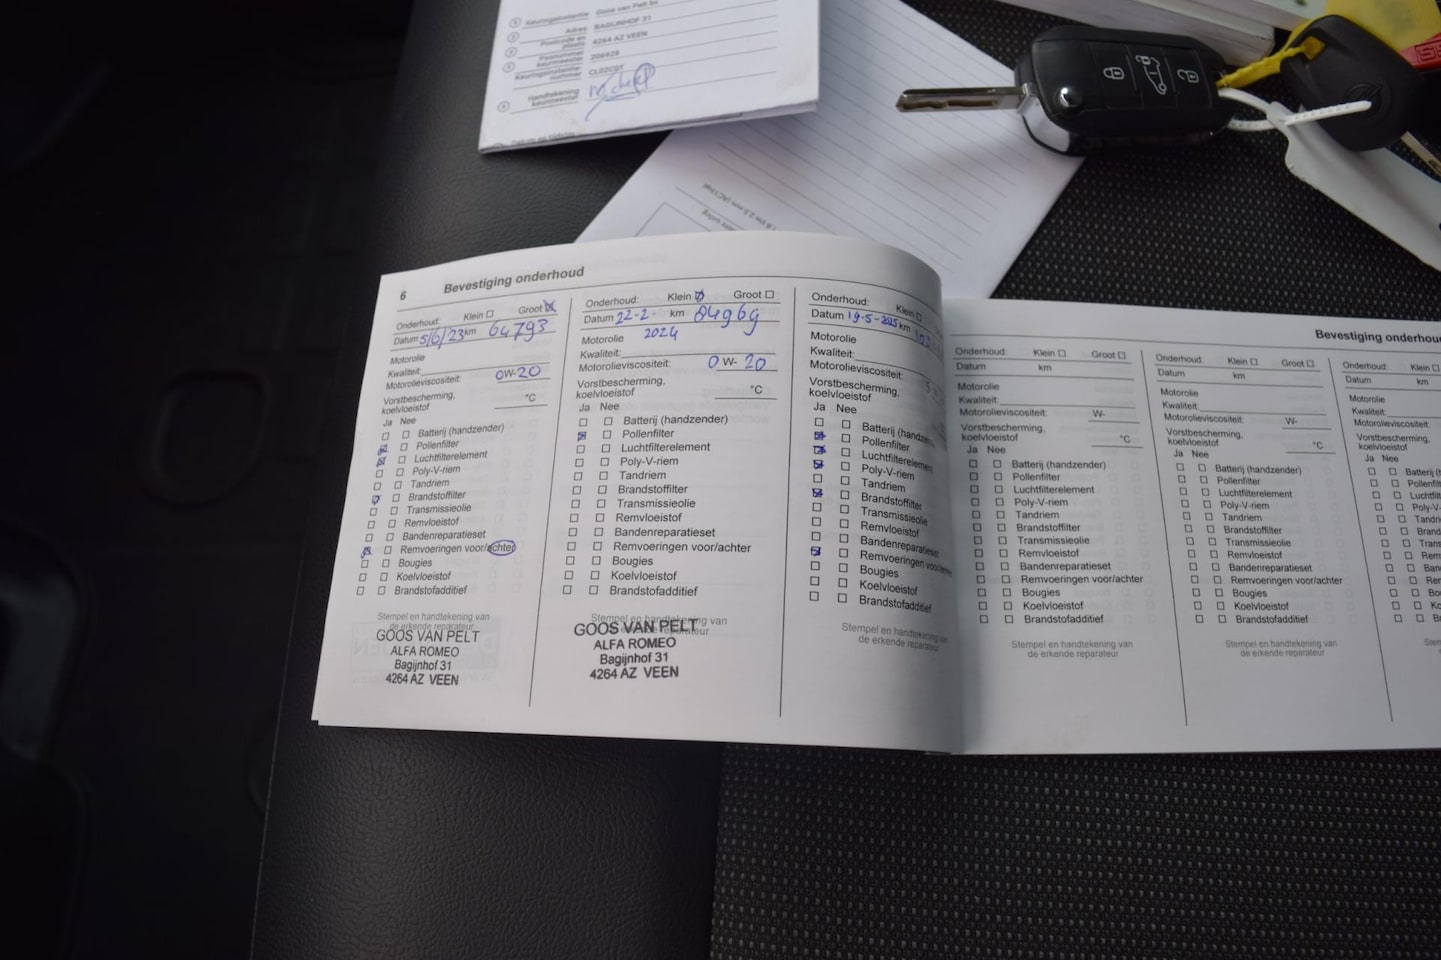 Keuringsinstantie Goos van Pelt bv
Adres BAGIJNHOF 31
Postcode en plaats 4264 AZ VEEN
Pasnummer keurmeester 206928
Keuringsinstantie-nummer
Handtekening keurmeester
6 Bevestiging onderhoud
Onderhoud: Klein Groot
Datum 5/6/23 km 64793
Motorolie
Kwaliteit:
Motorolieviscositeit: 0W-20
Vorstbescherming,
koelvloeistof °C
Ja Nee
Batterij (handzender)
Pollenfilter
Luchtfilterelement
Poly-V-riem
Tandriem
Brandstoffilter
Transmissieolie
Remvloeistof
Bandenreparatieset
Remvoeringen voor/achter
Bougies
Koelvloeistof
Brandstofadditief
Stempel en handtekening van
de erkende reparateur
GOOS VAN PELT
ALFA ROMEO
Bagijnhof 31
4264 AZ VEEN
Onderhoud: Klein Groot
Datum 22-2- km 84969
Motorolie 2024
Kwaliteit:
Motorolieviscositeit: 0W-20
Vorstbescherming,
koelvloeistof °C
Ja Nee
Batterij (handzender)
Pollenfilter
Luchtfilterelement
Poly-V-riem
Tandriem
Brandstoffilter
Transmissieolie
Remvloeistof
Bandenreparatieset
Remvoeringen voor/achter
Bougies
Koelvloeistof
Brandstofadditief
Stempel en handtekening van
de erkende reparateur
GOOS VAN PELT
ALFA ROMEO
Bagijnhof 31
4264 AZ VEEN
Onderhoud: Klein
Datum 19-5-2025 km
Motorolie
Kwaliteit:
Motorolieviscositeit:
Vorstbescherming,
koelvloeistof
Ja Nee
Batterij (handzender)
Pollenfilter
Luchtfilterelement
Poly-V-riem
Tandriem
Brandstoffilter
Transmissieolie
Remvloeistof
Bandenreparatieset
Remvoeringen voor/achter
Bougies
Koelvloeistof
Brandstofadditief
Stempel en handtekening van
de erkende reparateur
Bevestiging onderhoud
Onderhoud: Klein Groot
Datum km
Motorolie
Kwaliteit:
Motorolieviscositeit: W-
Vorstbescherming,
koelvloeistof °C
Ja Nee
Batterij (handzender)
Pollenfilter
Luchtfilterelement
Poly-V-riem
Tandriem
Brandstoffilter
Transmissieolie
Remvloeistof
Bandenreparatieset
Remvoeringen voor/achter
Bougies
Koelvloeistof
Brandstofadditief
Stempel en handtekening van
de erkende reparateur
Onderhoud: Klein Groot
Datum km
Motorolie
Kwaliteit:
Motorolieviscositeit: W-
Vorstbescherming,
koelvloeistof °C
Ja Nee
Batterij (handzender)
Pollenfilter
Luchtfilterelement
Poly-V-riem
Tandriem
Brandstoffilter
Transmissieolie
Remvloeistof
Bandenreparatieset
Remvoeringen voor/achter
Bougies
Koelvloeistof
Brandstofadditief
Stempel en handtekening van
de erkende reparateur
Onderhoud: Klein
Datum km
Motorolie
Kwaliteit:
Motorolieviscositeit:
Vorstbescherming,
koelvloeistof
Ja Nee